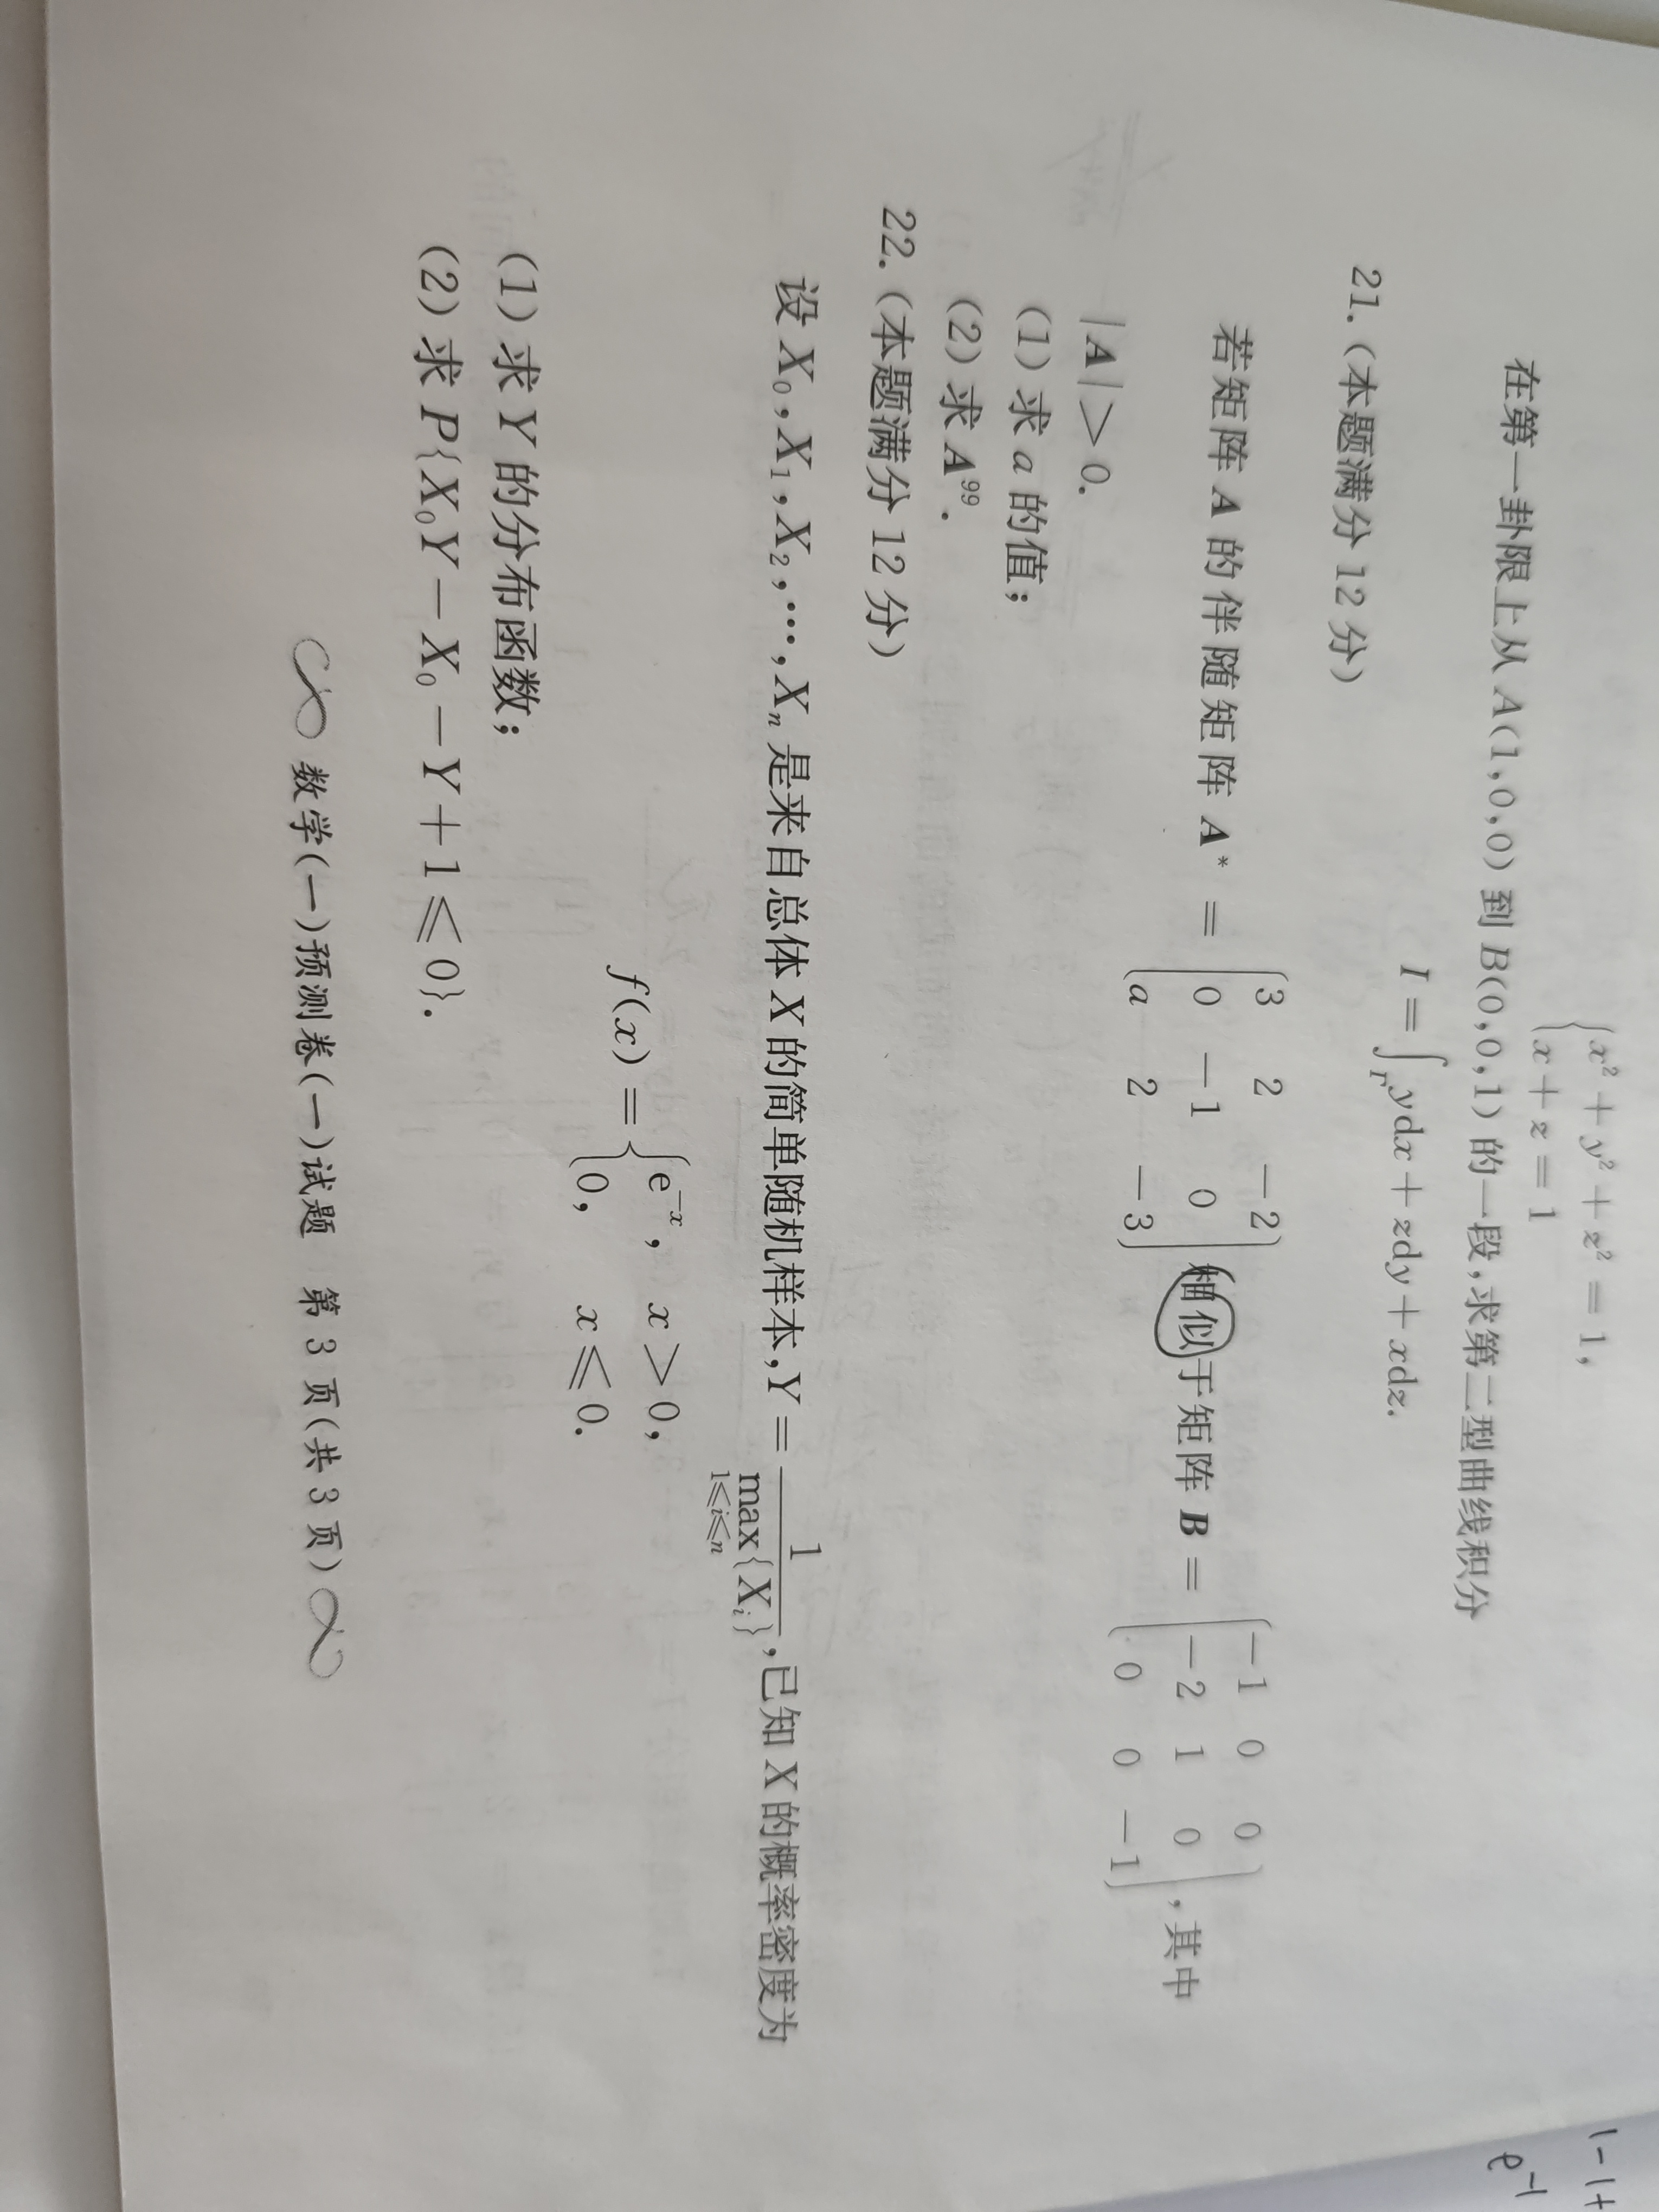 x² + y² + z² = 1,
x + z = 1
在第一卦限上从 A(1,0,0) 到 B(0,0,1) 的一段,求第二型曲线积分
I = ∫_Γ ydx + zdy + xdz.
21. (本题满分 12 分)
若矩阵 A 的伴随矩阵 A* = (3 2 −2; 0 −1 0; a 2 −3) 相似于矩阵 B = (−1 0 0; −2 1 0; 0 0 −1), 其中
|A| > 0.
(1) 求 a 的值;
(2) 求 A⁹⁹.
22. (本题满分 12 分)
设 X₀,X₁,X₂,…,Xₙ 是来自总体 X 的简单随机样本,Y = 1/max{Xᵢ} 1⩽i⩽n, 已知 X 的概率密度为
f(x) = { e⁻ˣ, x > 0,
0, x ⩽ 0.
(1) 求 Y 的分布函数;
(2) 求 P{X₀Y − X₀ − Y + 1 ⩽ 0}.
数学(一)预测卷(一)试题 第 3 页(共 3 页)
1-1+
e⁻¹